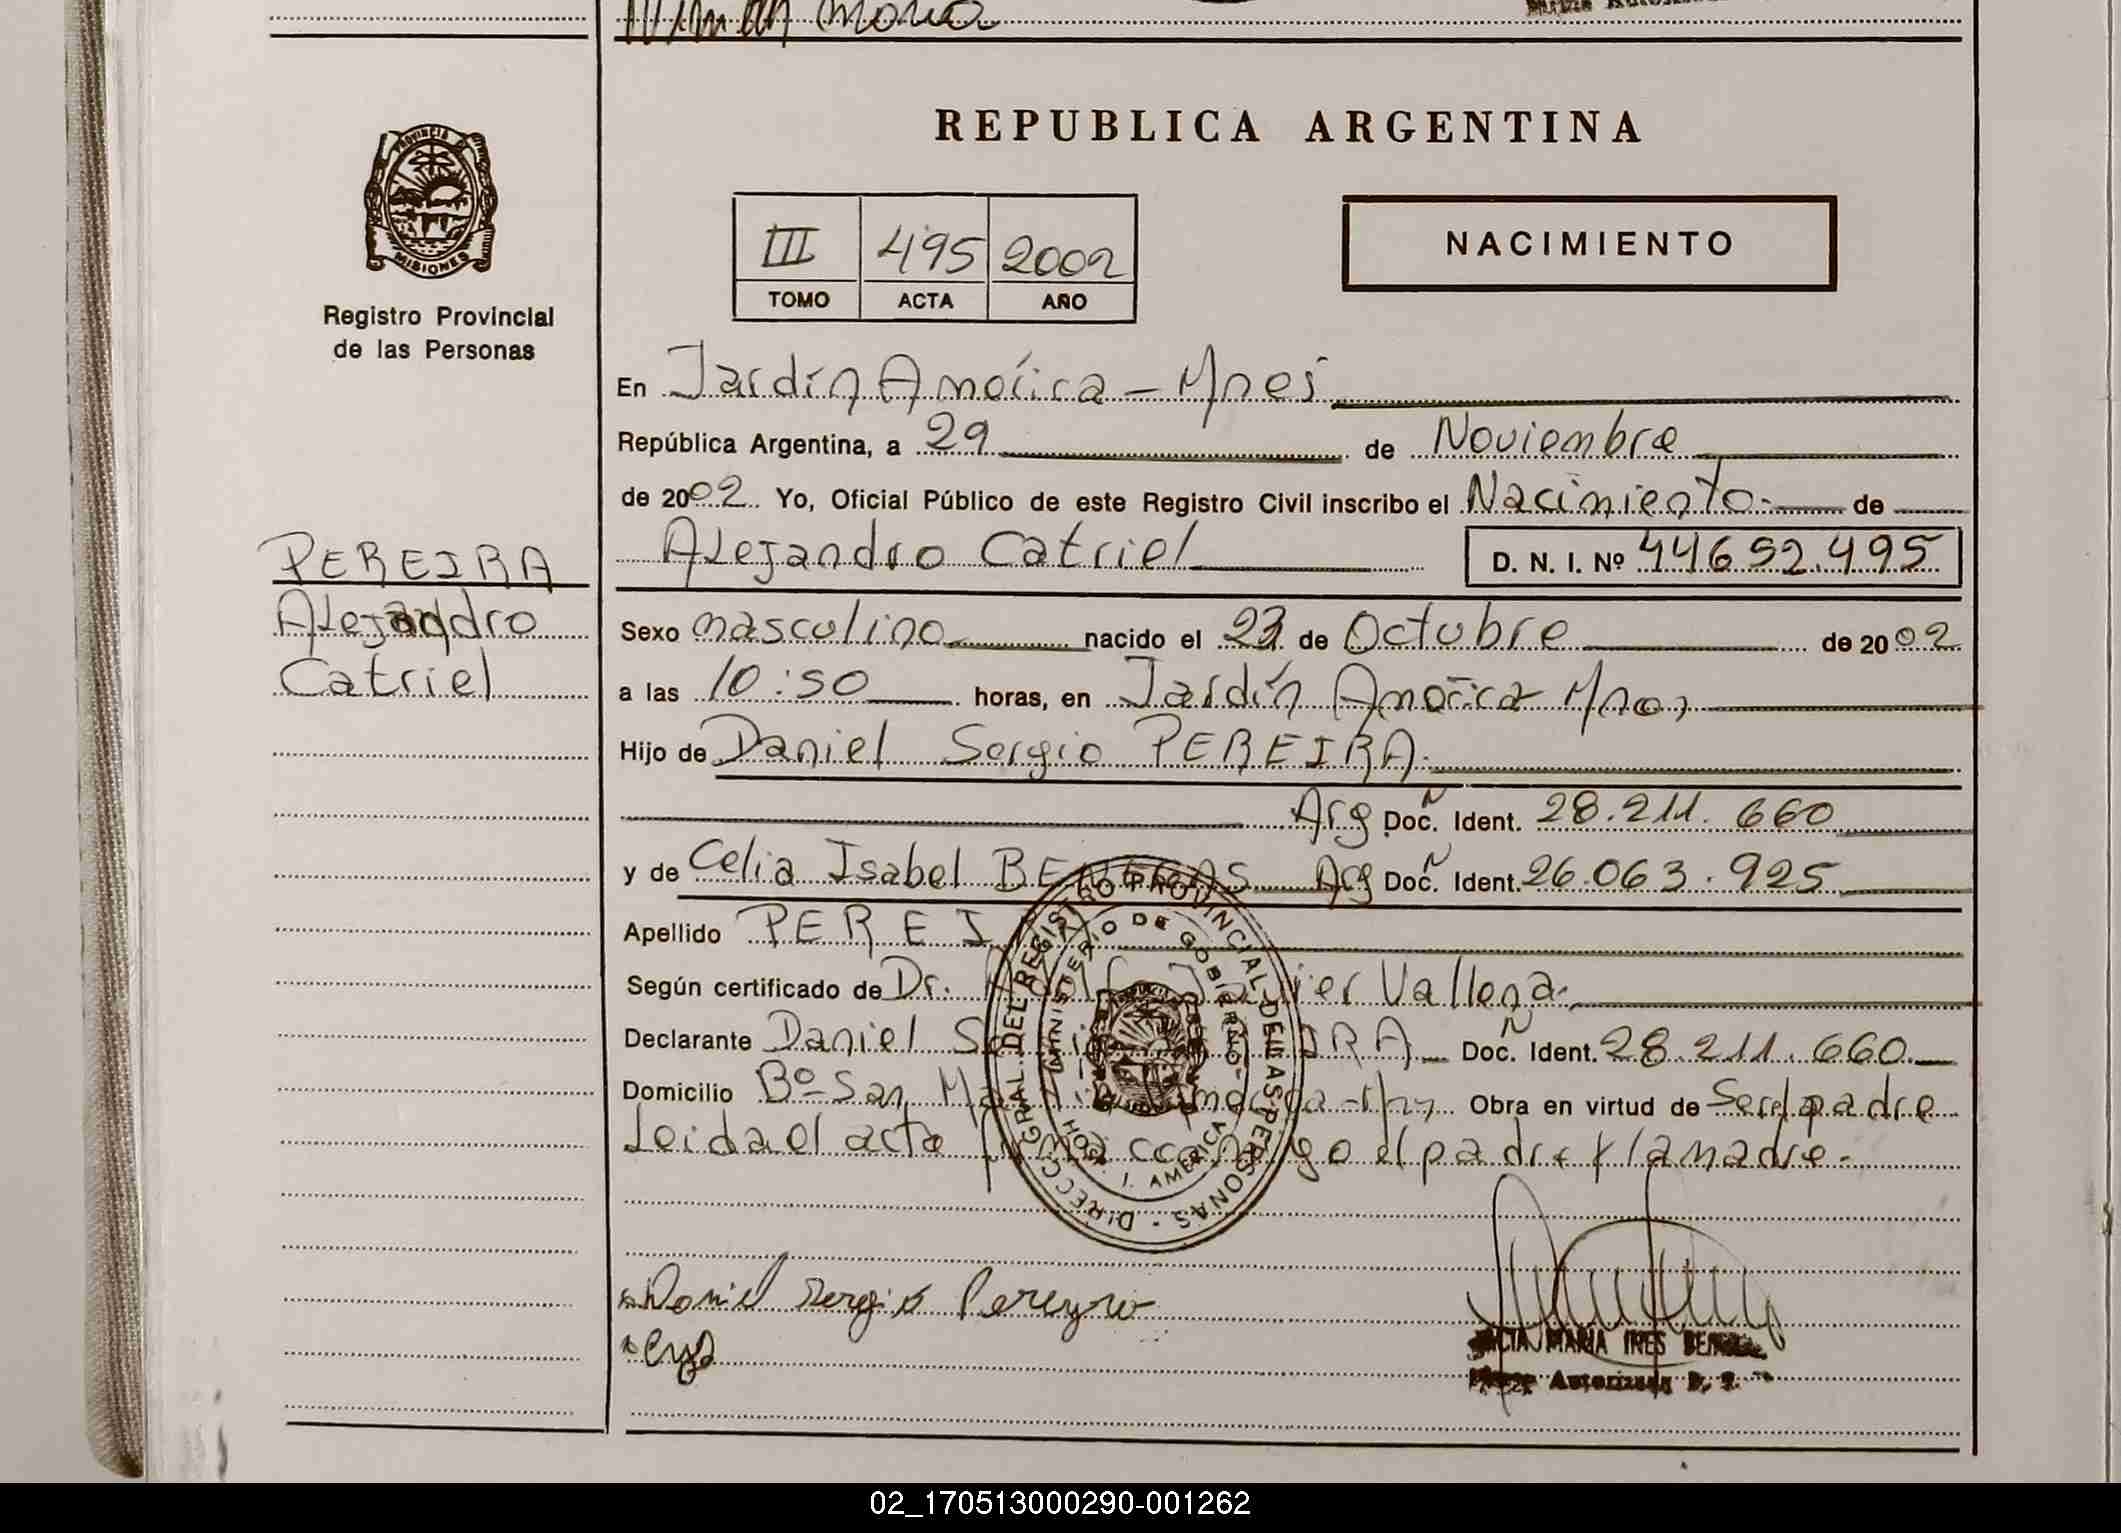 REPUBLICA ARGENTINA
PROVINCIA
MISIONES
Registro Provincial
de las Personas
III 495 2002
TOMO ACTA AÑO
NACIMIENTO
En Jardín América - Mnes
República Argentina, a 29 de Noviembre
de 2002 Yo, Oficial Público de este Registro Civil inscribo el Nacimiento de
Alejandro Catriel D. N. I. Nº 44652.495
PEREIRA
Alejandro
Catriel
Sexo masculino nacido el 23 de Octubre de 2002
a las 10:50 horas, en Jardín América Mnes
Hijo de Daniel Sergio PEREIRA.
Arg Doc. Ident. 28.211.660
y de Celia Isabel BENEGAS Arg Doc. Ident. 26.063.925
Apellido PEREIRA
Según certificado de Dr. Javier Vallena.
Declarante Daniel Sergio PEREIRA Doc. Ident. 28.211.660
Domicilio Bº San América Obra en virtud de Ser el padre
Leida el acta firma conmigo el padre y la madre.
DIRECC. GRAL. DEL REGISTRO PROVINCIAL DE LAS PERSONAS
MINISTERIO DE GOBIERNO
J. AMERICA
Daniel Sergio Pereyra
MARIA INES
Autorizada
02_170513000290-001262